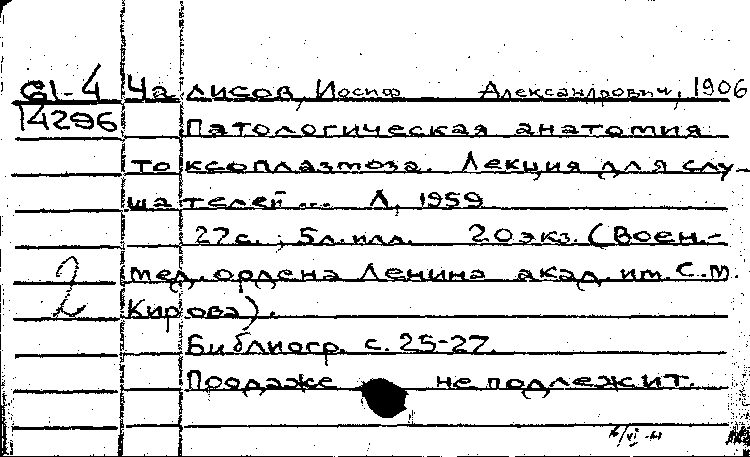 G1-4 Чалисов, Иосиф Александрович, 1906
14296 Патологическая анатомия
токсоплазмоза. Лекция для слу-
шателей ... Л, 1959
27 с.; 5 л. илл. 20 экз. (Воен.-
2 мед. ордена Ленина акад. им. С. М.
Кирова).
Библиогр. с. 25-27.
Продаже не подлежит.